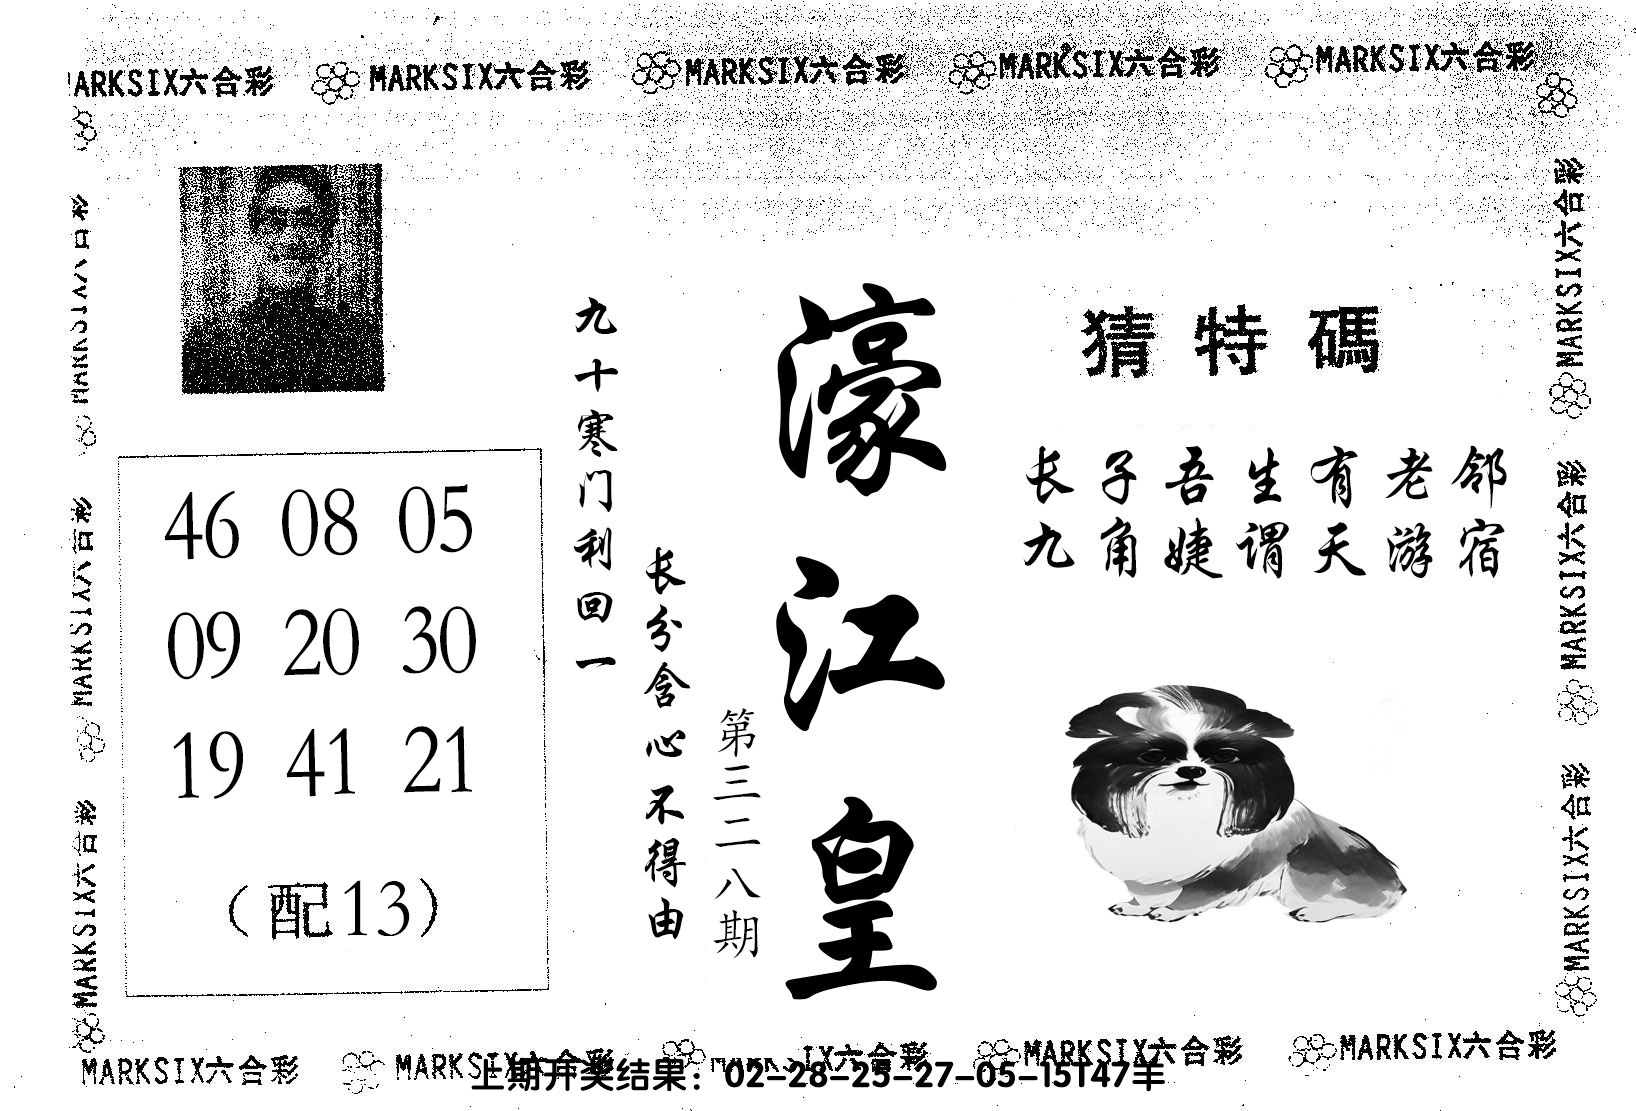 MARKSIX六合彩 MARKSIX六合彩 MARKSIX六合彩 MARKSIX六合彩
猜特碼
长子吾生有老邻
九角婕谓天游宿
濠江皇
第三二八期
九十寒门利回一
长分含心不得由
46 08 05
09 20 30
19 41 21
（配13）
MARKSIX六合彩
MARKSIX六合彩
MARKSIX六合彩
MARKSIX六合彩
MARKSIX六合彩
MARKSIX六合彩 MARKSIX六合彩 MARKSIX六合彩 MARKSIX六合彩
上期开奖结果：02-28-25-27-05-15T47羊